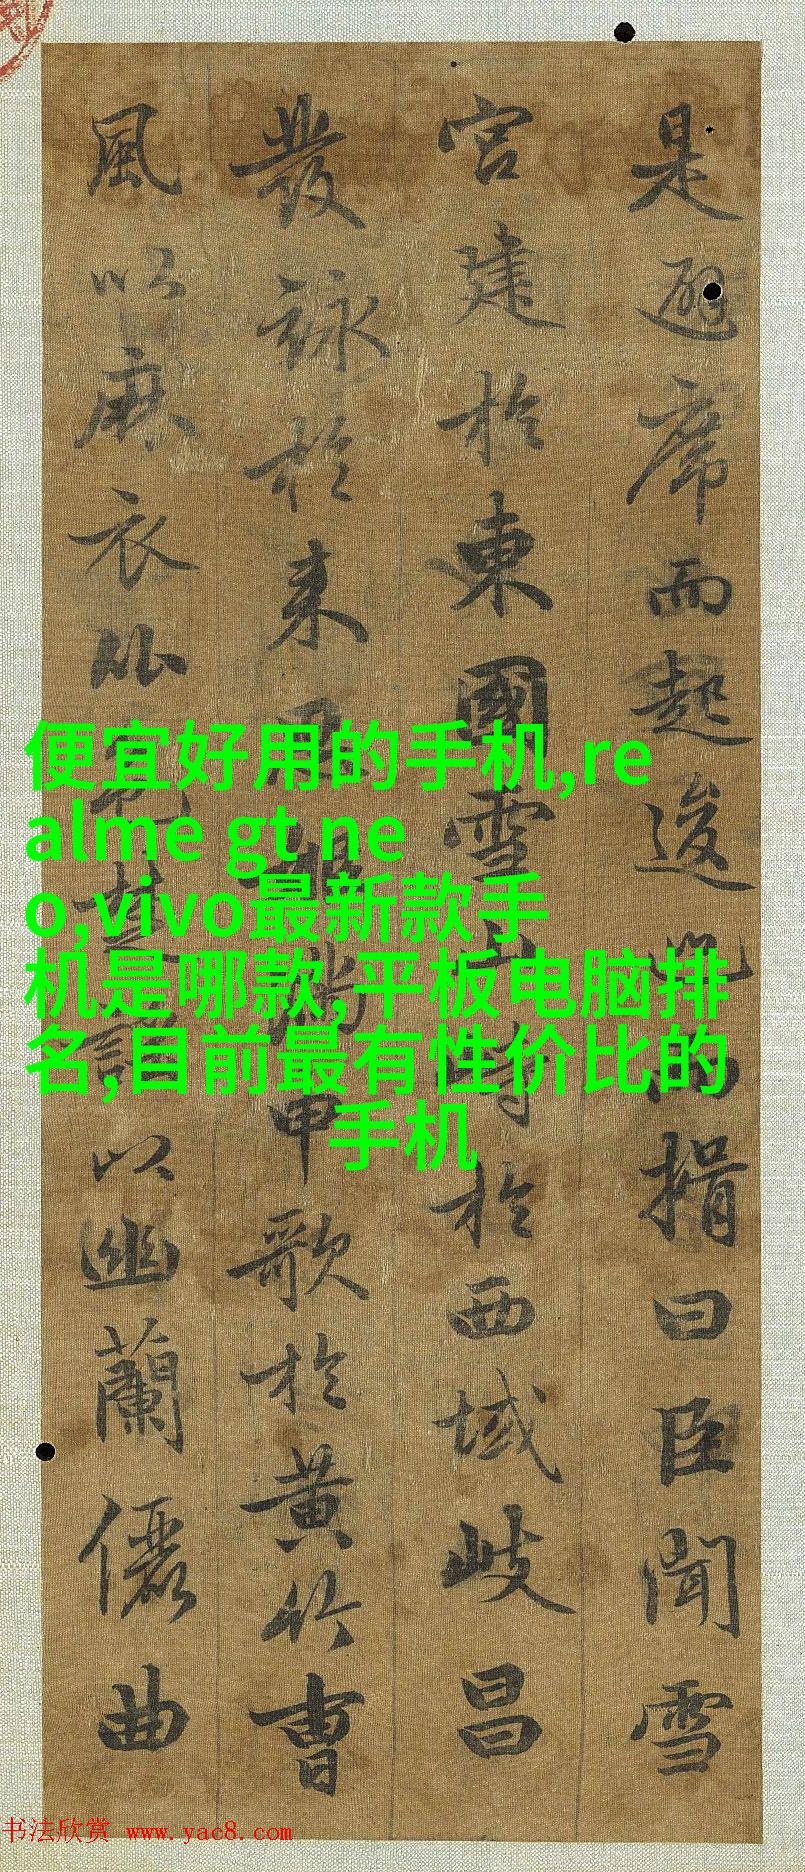 是避席而起逡巡而揖曰臣聞雪
宮建於東國雪山峙於西域岐昌
發詠於来思姬滿申歌於黃竹曹
風以麻衣比色楚謠以幽蘭儷曲
便宜好用的手机,re
alme gt ne
o,vivo最新款手
机是哪款,平板电脑排
名,目前最有性价比的
手机
书法欣赏 www.yac8.com